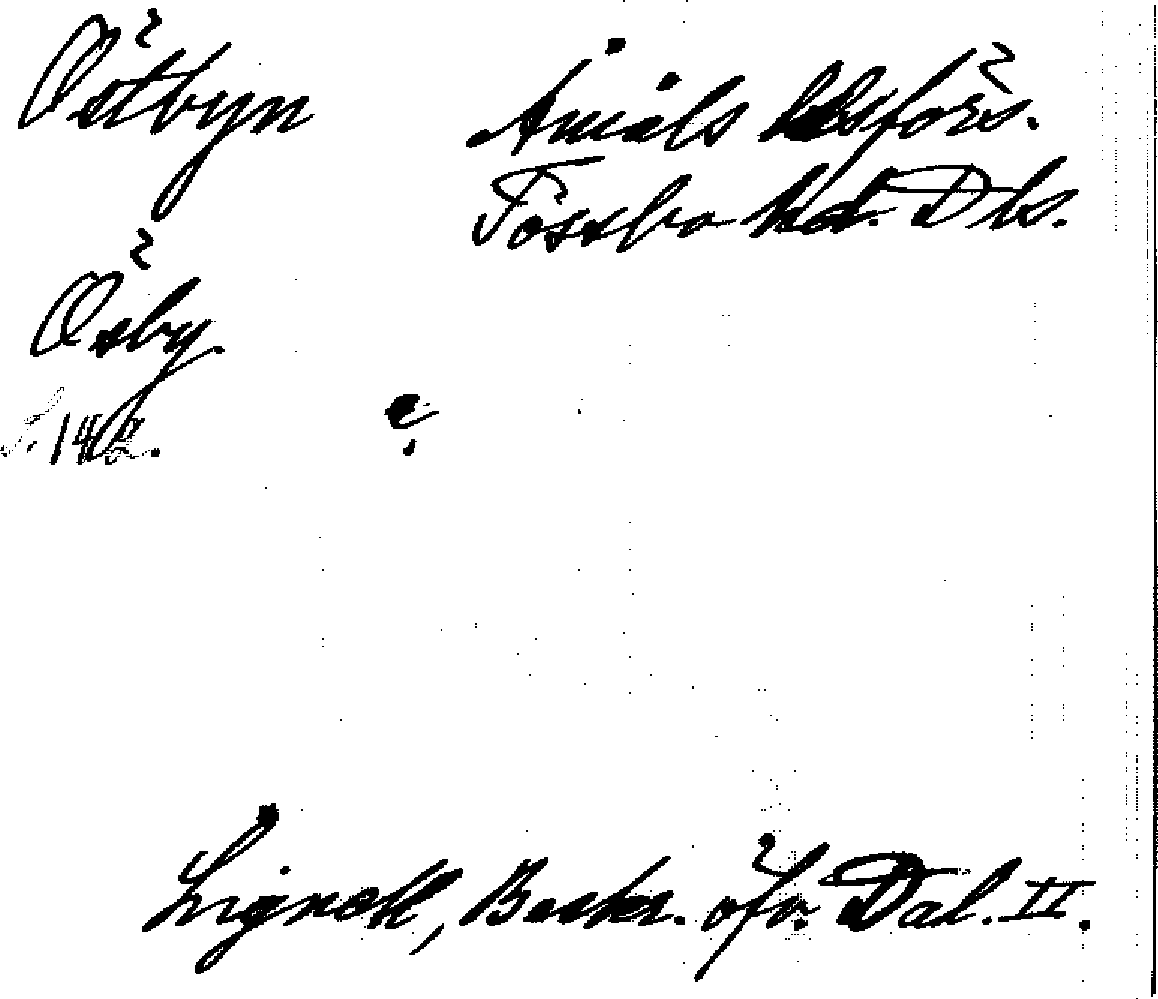 Östbyn
Åmåls lfsförs.
Tössbo hd. Dls.
Ösby
s. 142.
Lignell, Beskr. öfv. Dal. II.